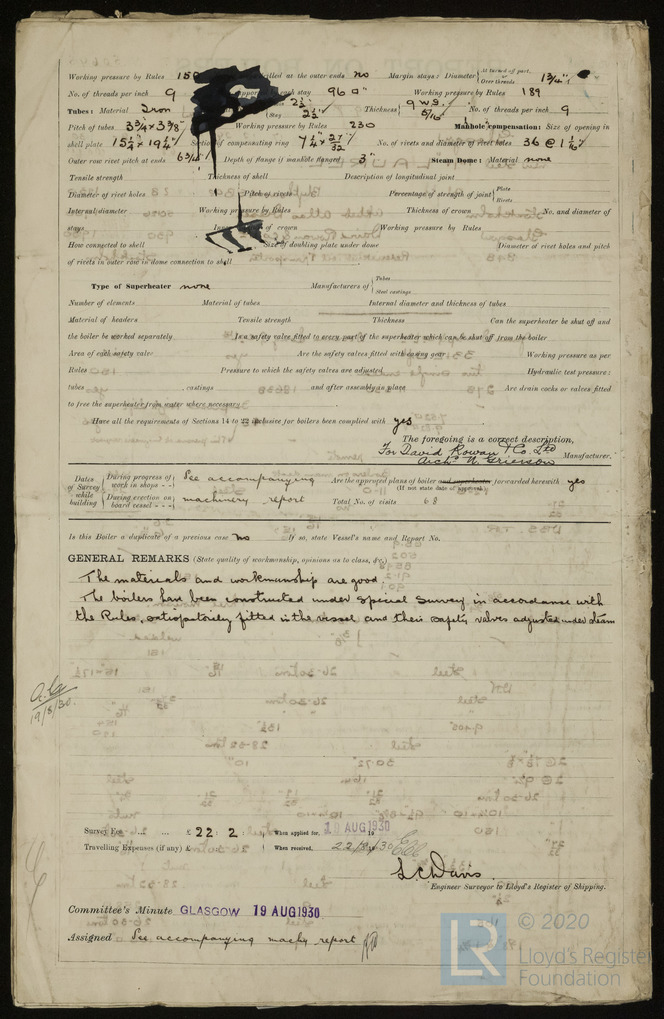 Working pressure by Rules 150 drilled at the outer ends no Margin stays: Diameter { At turned off part, or Over threads 1 3/4"
No. of threads per inch 9 supported by each stay 96 □" Working pressure by Rules 189
Tubes: Material Iron 2 1/2" Stay 2 1/2" Thickness { 9 W.G. 5/16" No. of threads per inch 9
Pitch of tubes 3 3/4 x 3 3/8" Working pressure by Rules 230 Manhole compensation: Size of opening in
shell plate 15 1/4 x 19 1/4" Section of compensating ring 7 1/4 x 27/32 No. of rivets and diameter of rivet holes 36 @ 1 1/16"
Outer row rivet pitch at ends 6 3/4" Depth of flange if manhole flanged 3" Steam Dome: Material none
Tensile strength Thickness of shell Description of longitudinal joint
Diameter of rivet holes Pitch of rivets Percentage of strength of joint { Plate Rivets
Internal diameter Working pressure by Rules Thickness of crown No. and diameter of
stays of crown Working pressure by Rules
How connected to shell Size of doubling plate under dome Diameter of rivet holes and pitch
of rivets in outer row in dome connection to shell
Type of Superheater none Manufacturers of { Tubes Steel castings
Number of elements Material of tubes Internal diameter and thickness of tubes
Material of headers Tensile strength Thickness Can the superheater be shut off and
the boiler be worked separately Is a safety valve fitted to every part of the superheater which can be shut off from the boiler
Area of each safety valve Are the safety valves fitted with easing gear Working pressure as per
Rules Pressure to which the safety valves are adjusted Hydraulic test pressure:
tubes , castings and after assembly in place Are drain cocks or valves fitted
to free the superheater from water where necessary
Have all the requirements of Sections 14 to 22 inclusive for boilers been complied with yes
The foregoing is a correct description,
For David Rowan & Co. Ltd
Archd W Grierson Manufacturer.
Dates of Survey while building { During progress of work in shops - - See accompanying Are the approved plans of boiler and superheater forwarded herewith yes
(If not state date of approval.)
During erection on board vessel - - - machinery report Total No. of visits 68
Is this Boiler a duplicate of a previous case no If so, state Vessel's name and Report No.
GENERAL REMARKS (State quality of workmanship, opinions as to class, &c.)
The materials and workmanship are good.
The boilers have been constructed under Special Survey in accordance with
the Rules, satisfactorily fitted in the vessel and their safety valves adjusted under steam
19/8/30.
Survey Fee ... ... £ 22 : 2 : When applied for, 10 AUG 1930
Travelling Expenses (if any) £ : : When received, 22/8/30
L C Davis.
Engineer Surveyor to Lloyd's Register of Shipping.
Committee's Minute GLASGOW 19 AUG 1930
Assigned See accompanying machy report
© 2020
LR Lloyd's Register
Foundation